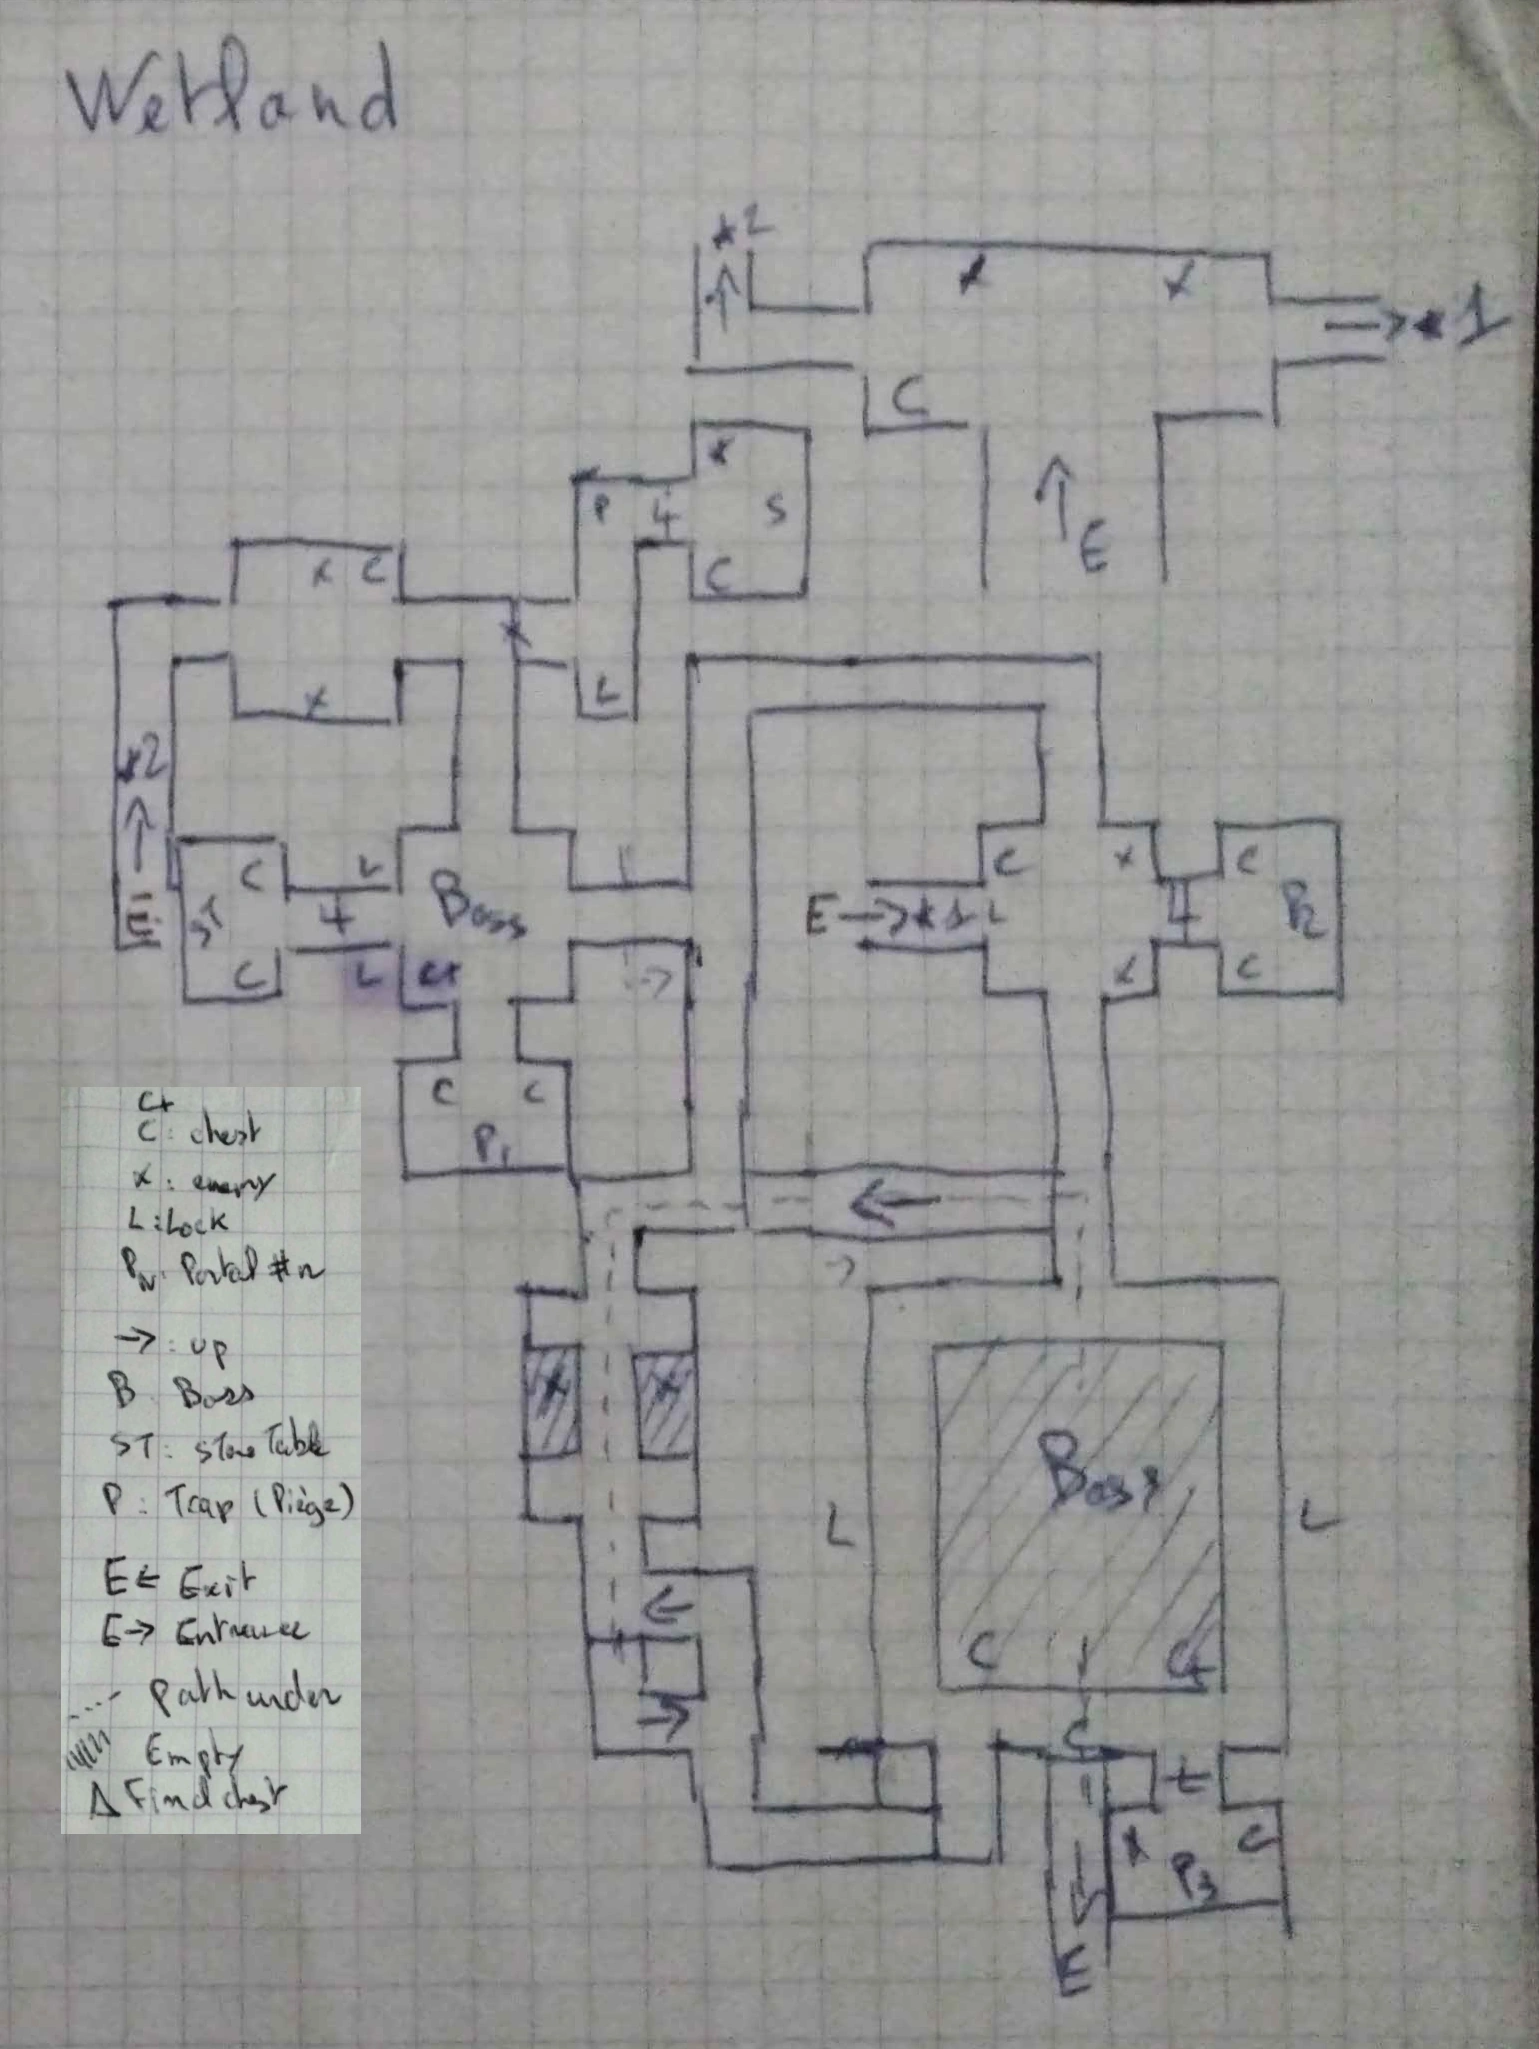 Wetland
*2
x x
→ *1
C
↑ E
x
P L S
C
x C
x
x
L
*2
↑
E
C L
ST L Boss
C L C+
L
→
C x C
E → *1 L L P2
x C
C C
P1
←
→
x x
Boss
L L
←
C L C+
→
C
L L
x C
P3
↓
E
C+
C: chest
x: enemy
L: Lock
PN: Portal #n
→: up
B: Boss
ST: stone Table
P: Trap (Piège)
E← Exit
E→ Entrance
--- path under
//// Empty
Δ Find chest